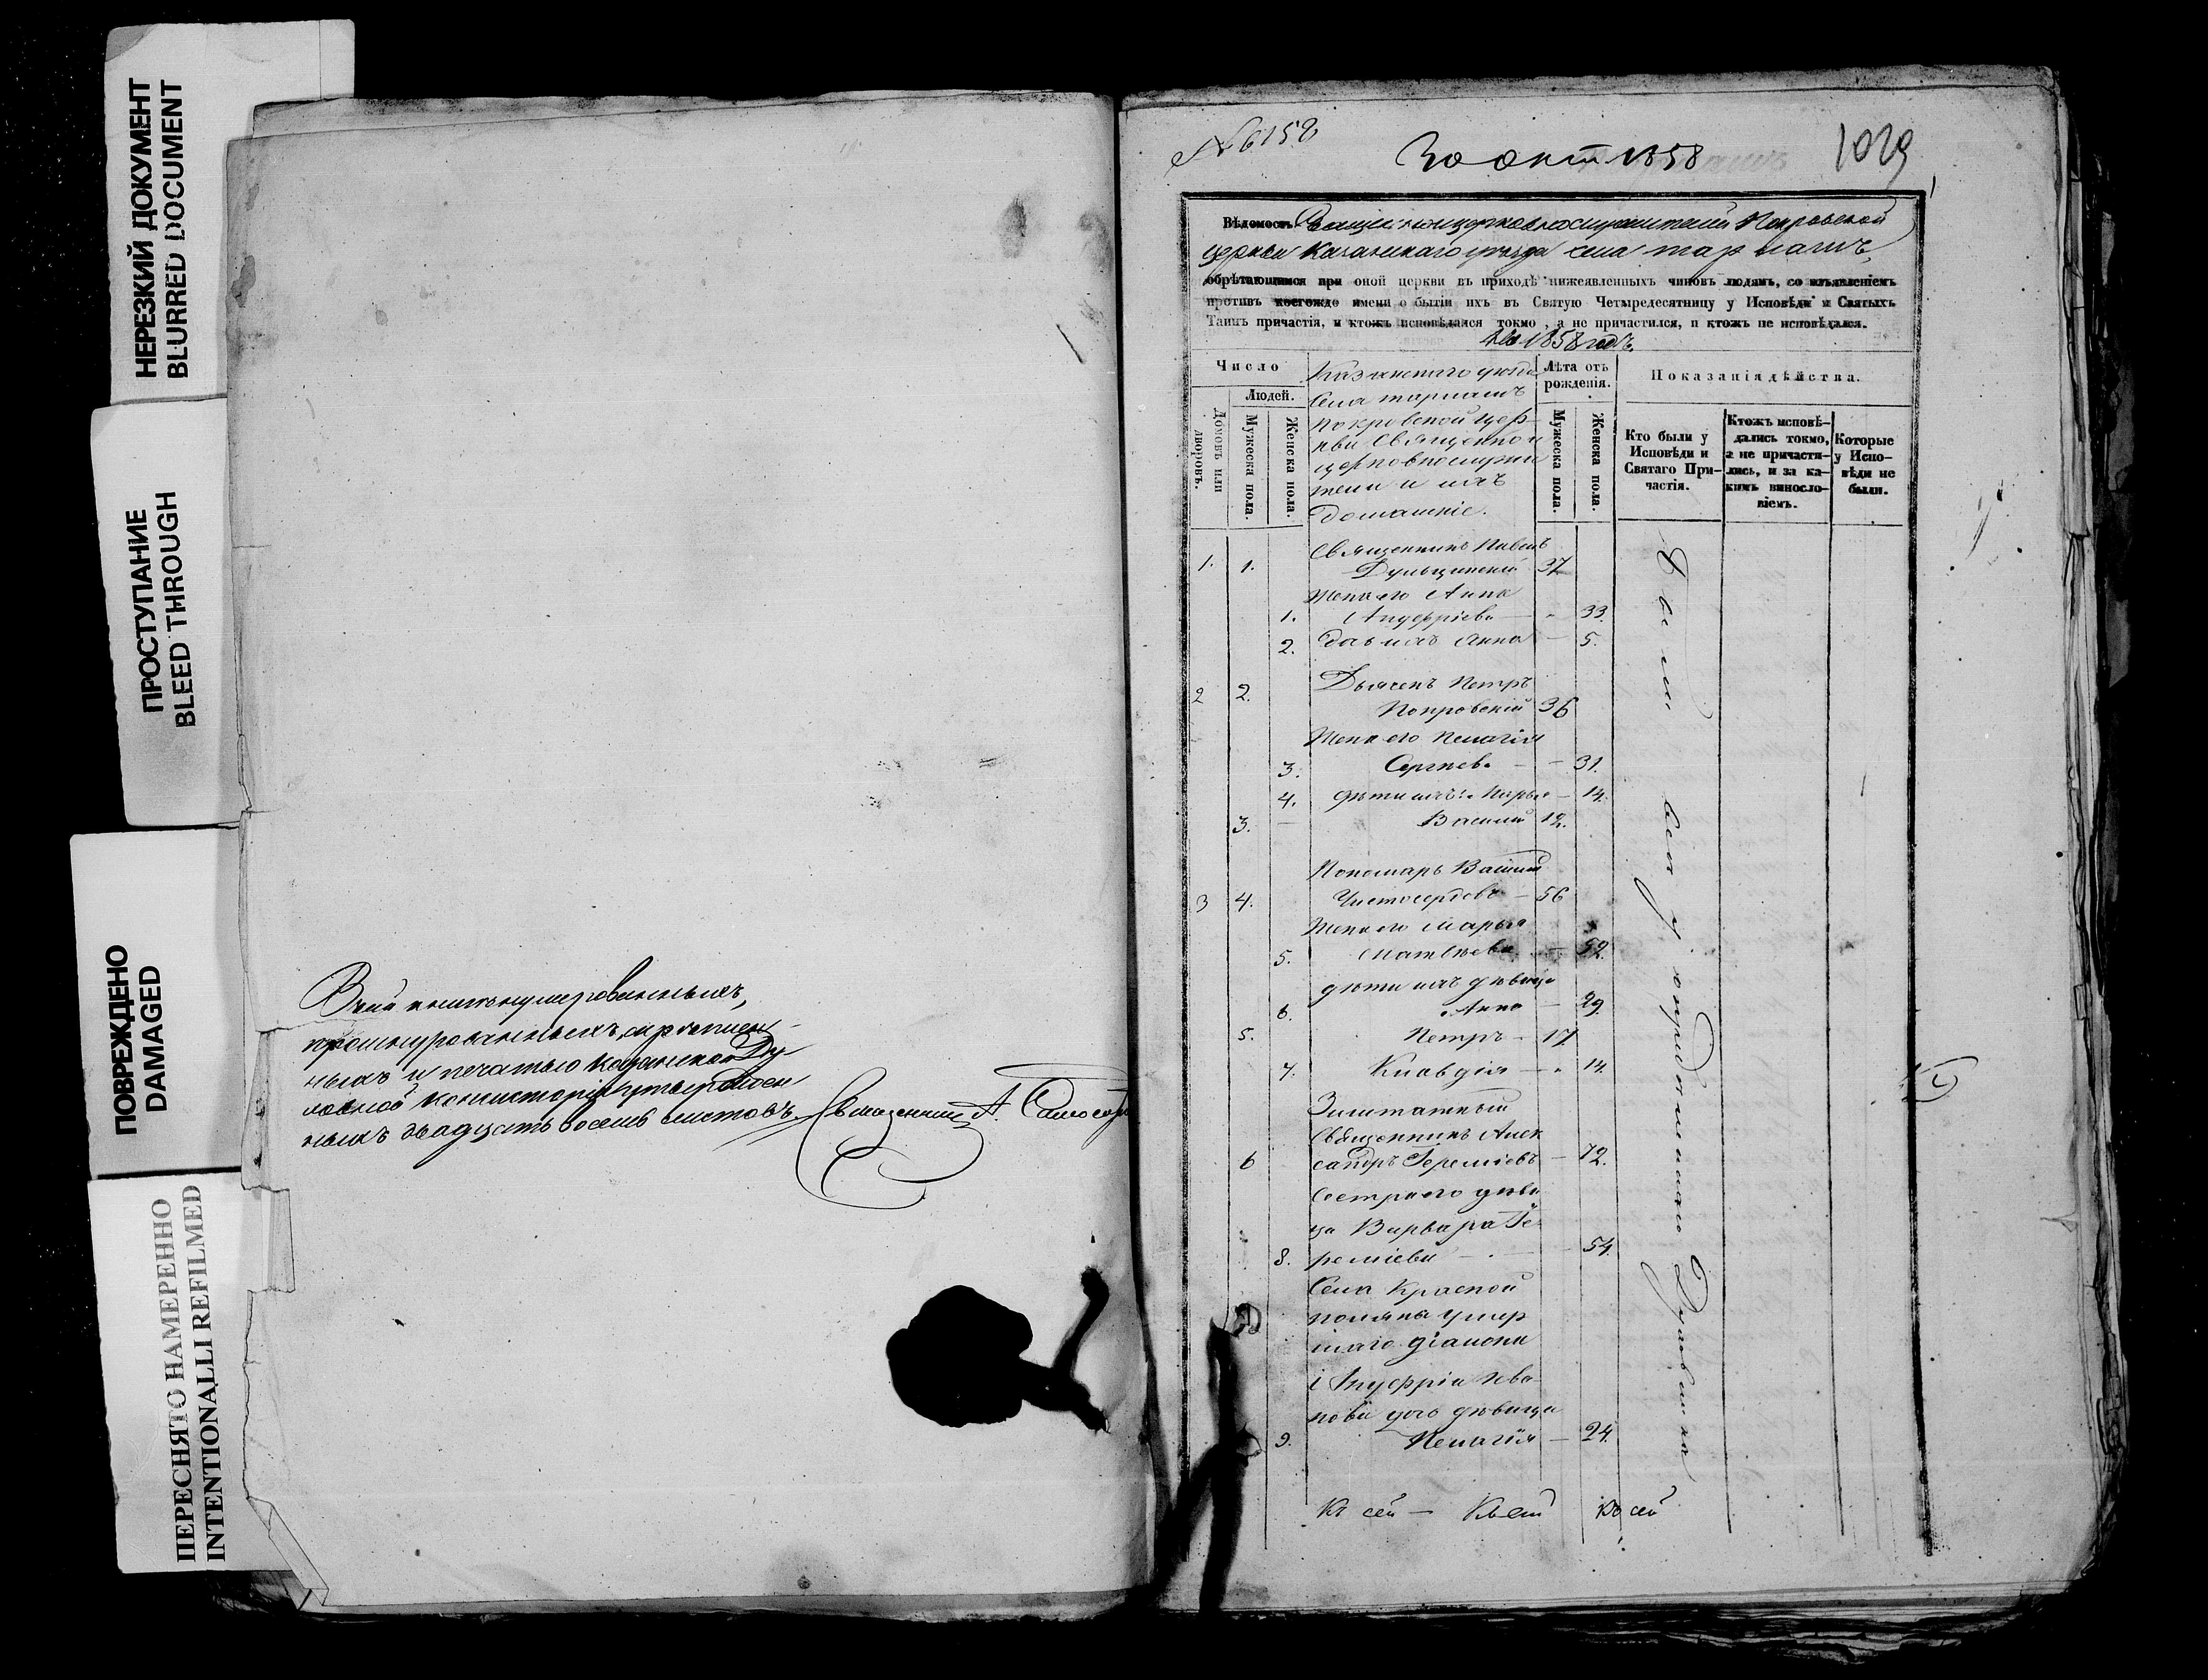 НЕРЕЗКИЙ ДОКУМЕНТ
BLURRED DOCUMENT
ПРОСТУПАНИЕ
BLEED THROUGH
ПОВРЕЖДЕНО
DAMAGED
ПЕРЕСНЯТО НАМЕРЕННО
INTENTIONALLI REFILMED
нумерованныхъ,
прошнурованныхъ, скреплен-
ныхъ и печатью Казанской Ду-
ховной Консисторіи
ныхъ двадцать восемь листовъ. Священникъ А.
№ 6158
30 окт 1858
1029
Вѣдомость Покровской
церкви Казанскаго уѣзда села
обрѣтающимся при оной церкви въ приходѣ нижеявленныхъ чиновъ людямъ, со изъявленіемъ
противъ коегождо имени о бытіи ихъ въ Святую Четыредесятницу у Исповѣди и Святыхъ
Таинъ причастія, и ктожъ исповѣдался токмо, а не причастился, и ктожъ не исповѣдался.
На 1858 годъ.
Число
Людей.
Домовъ или дворовъ.
Мужеска пола.
Женска пола.
Казанскаго уѣзда
Села
Покровской цер-
кви Священно и
церковнослужи
тели и ихъ
домашніе.
Лѣта отъ рожденія.
Мужеска пола.
Женска пола.
Показанія дѣйства.
Кто были у
Исповѣди и
Святаго При-
частія.
Ктожъ исповѣ-
дались токмо,
а не причасти-
лись, и за ка-
кимъ виносло-
віемъ.
Которые
у Испо-
вѣди не
были.
Священникъ Павелъ
1. 1. 37
Жена его Анна
1. Ануфріева 33.
2. дочь ихъ Анна 5.
Дьяконъ Петръ
2 2. Покровскій 36
Жена его Пелагія
3. Сергѣева 31.
4. дѣти ихъ: Марья 14.
3. Василій 12.
Пономарь Василій
3 4. Чистосердовъ 56
Жена его Марья
5. Матвѣева 52.
дѣти ихъ дѣвица
6. Анна 29.
5. Петръ 17
7. Клавдія 14.
Заштатный
Священникъ Алек
6 сандръ Іереміевъ 72.
Сестра его дѣви
ца Варвара Іе-
8. реміева 54.
Села Красной
поляны умер
шаго діакона
Ануфрія Ива-
нова дочь дѣвица
9. Пелагія 24.
Были всѣ у исповѣди
Къ сей Къ сей Къ сей